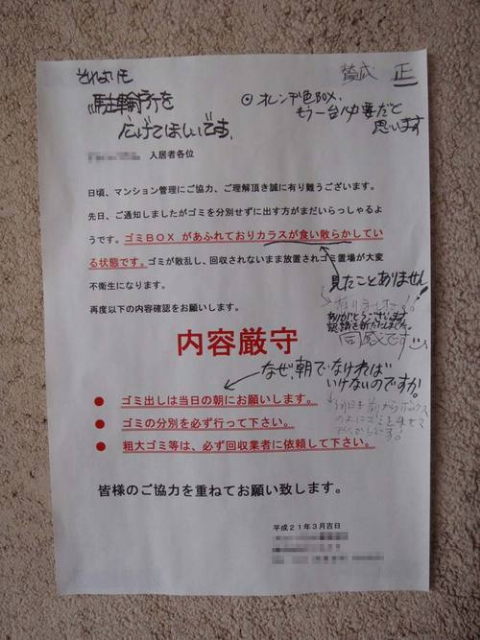 それよりも
駐輪所を
広げてほしいです。
賛成 正
⊙ オレンヂ色BOX、
もう一台必要だと
思います
入居者各位
日頃、マンション管理にご協力、ご理解頂き誠に有り難うございます。
先日、ご通知しましたがゴミを分別せずに出す方がまだいらっしゃるよ
うです。ゴミBOX があふれておりカラスが食い散らかしてい
る状態です。ゴミが散乱し、回収されないまま放置されゴミ置場が大変
不衛生になります。
見たことありません!
再度以下の内容確認をお願いします。
ありがとうございます
同感です
内容厳守
なぜ、朝でなければ
いけないのですか。
● ゴミ出しは当日の朝にお願いします。
● ゴミの分別を必ず行って下さい。
● 粗大ゴミ等は、必ず回収業者に依頼して下さい。
皆様のご協力を重ねてお願い致します。
平成21年3月吉日